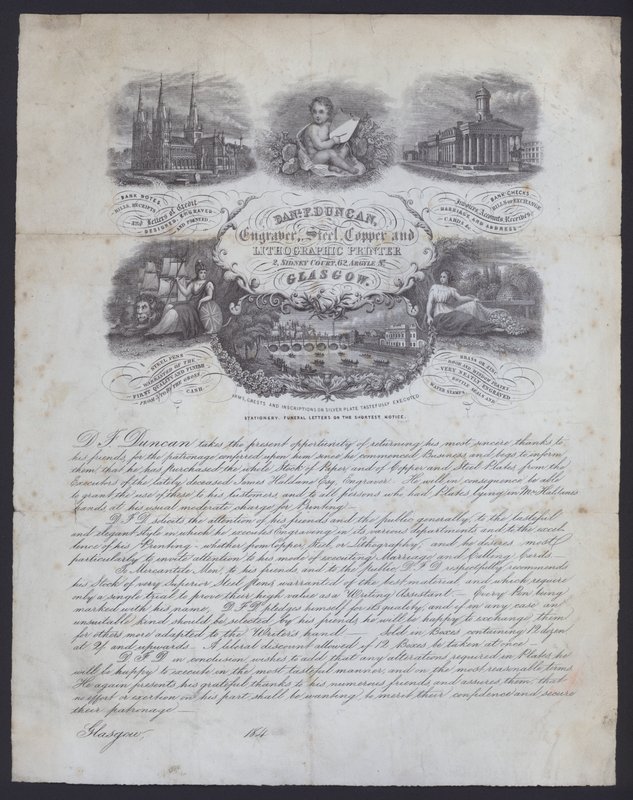 BANK NOTES
BILLS, RECEIPTS,
and Letters of Credit
DESIGNED, ENGRAVED
AND PRINTED
BANK CHECKS
BILLS OF EXCHANGE
Invoices, Accounts, Receipts,
MARRIAGE AND ADDRESS
CARDS &c.
DANL. F. DUNCAN,
Engraver, Steel, Copper and
LITHOGRAPHIC PRINTER
2, SIDNEY COURT, 62, ARGYLE ST.
GLASGOW.
STEEL PENS
WARRANTED OF THE
FIRST QUALITY AND FINISH
FROM TO THE GROSS
CARD
BRASS OR ZINC
DOOR AND WINDOW PLATES
VERY NEATLY ENGRAVED
BOTTLE SEALS AND
WAFER STAMPS
ARMS, CRESTS AND INSCRIPTIONS ON SILVER PLATE TASTEFULLY EXECUTED
STATIONERY. FUNERAL LETTERS ON THE SHORTEST NOTICE.
D. F. Duncan takes the present opportunity of returning his most sincere thanks to
his friends for the patronage conferred upon him since he commenced Business and begs to inform
them that he has purchased the whole Stock of Paper and of Copper and Steel Plates from the
Executors of the lately deceased James Haldane Esq. Engraver. He will in consequence be able
to grant the use of these to his customers and to all persons who had Plates lying in Mr. Haldane's
hands at his usual moderate charge for Printing —
D. F. D solicits the attention of his friends and the public generally, to the tasteful
and elegant style in which he executes Engraving in its various departments and to the excel-
lence of his Printing — whether from Copper, Steel or Lithography, and he desires most
particularly to invite attention to his mode of executing Marriage and Calling Cards —
To Mercantile Men, to his friends and to the public, D. F. D respectfully recommends
his Stock of very Superior Steel Pens warranted of the best material and which require
only a single trial to prove their high value as a Writing Assistant — Every Pen being
marked with his name, D. F. D pledges himself for its quality, and if in any case an
unsuitable kind should be selected by his friends he will be happy to exchange them
for others more adapted to the Writer's hand — Sold in Boxes containing 12 dozen
at 2/ and upwards — A liberal discount allowed if 12 Boxes be taken at once —
D. F. D in conclusion wishes to add that any alterations required in Plates, he
will be happy to execute in the most tasteful manner, and on the most reasonable terms
He again presents his grateful thanks to his numerous friends and assures them that
no effort or exertion on his part shall be wanting, to merit their confidence and secure
their patronage —
Glasgow, 184